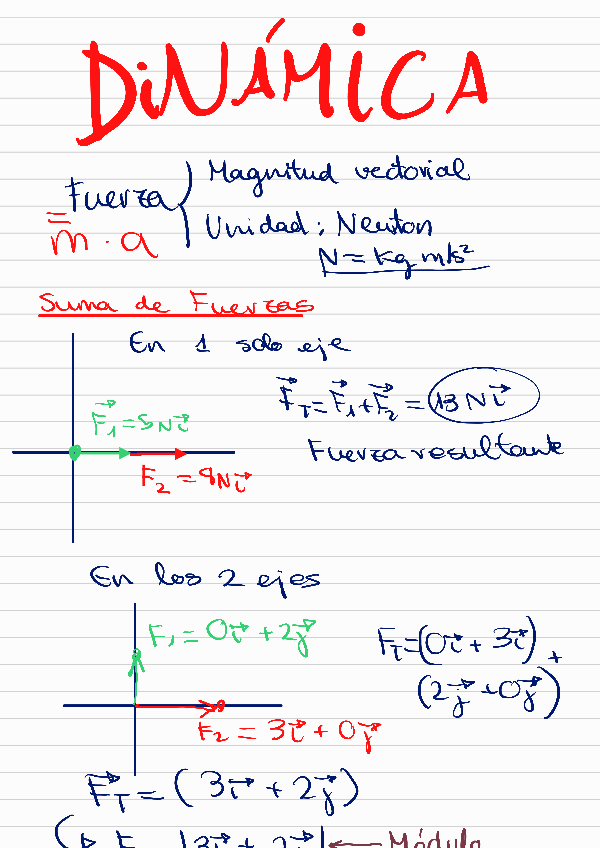 DINÁMICA
Fuerza { Magnitud vectorial
Unidad: Newton
= m · a
N = kg m/s²
Suma de Fuerzas
En 1 solo eje
F⃗₁ = 5N i⃗
F⃗_T = F⃗₁ + F⃗₂ = 13 N i⃗
Fuerza resultante
F₂ = 9N i⃗
En los 2 ejes
F₁ = 0i⃗ + 2j⃗
F_T = (0i⃗ + 3i⃗) +
(2j⃗ + 0j⃗)
F₂ = 3i⃗ + 0j⃗
F⃗_T = (3i⃗ + 2j⃗)
|3i⃗ + 2j⃗| ← Módulo